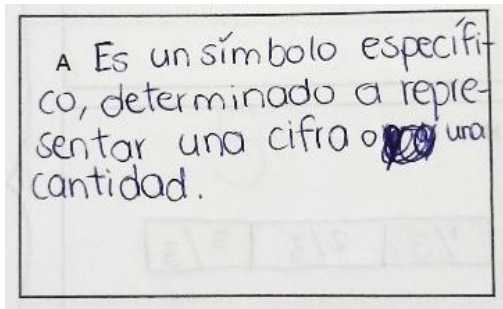 A Es un símbolo especifi-
co, determinado a repre-
sentar una cifra o una
cantidad.